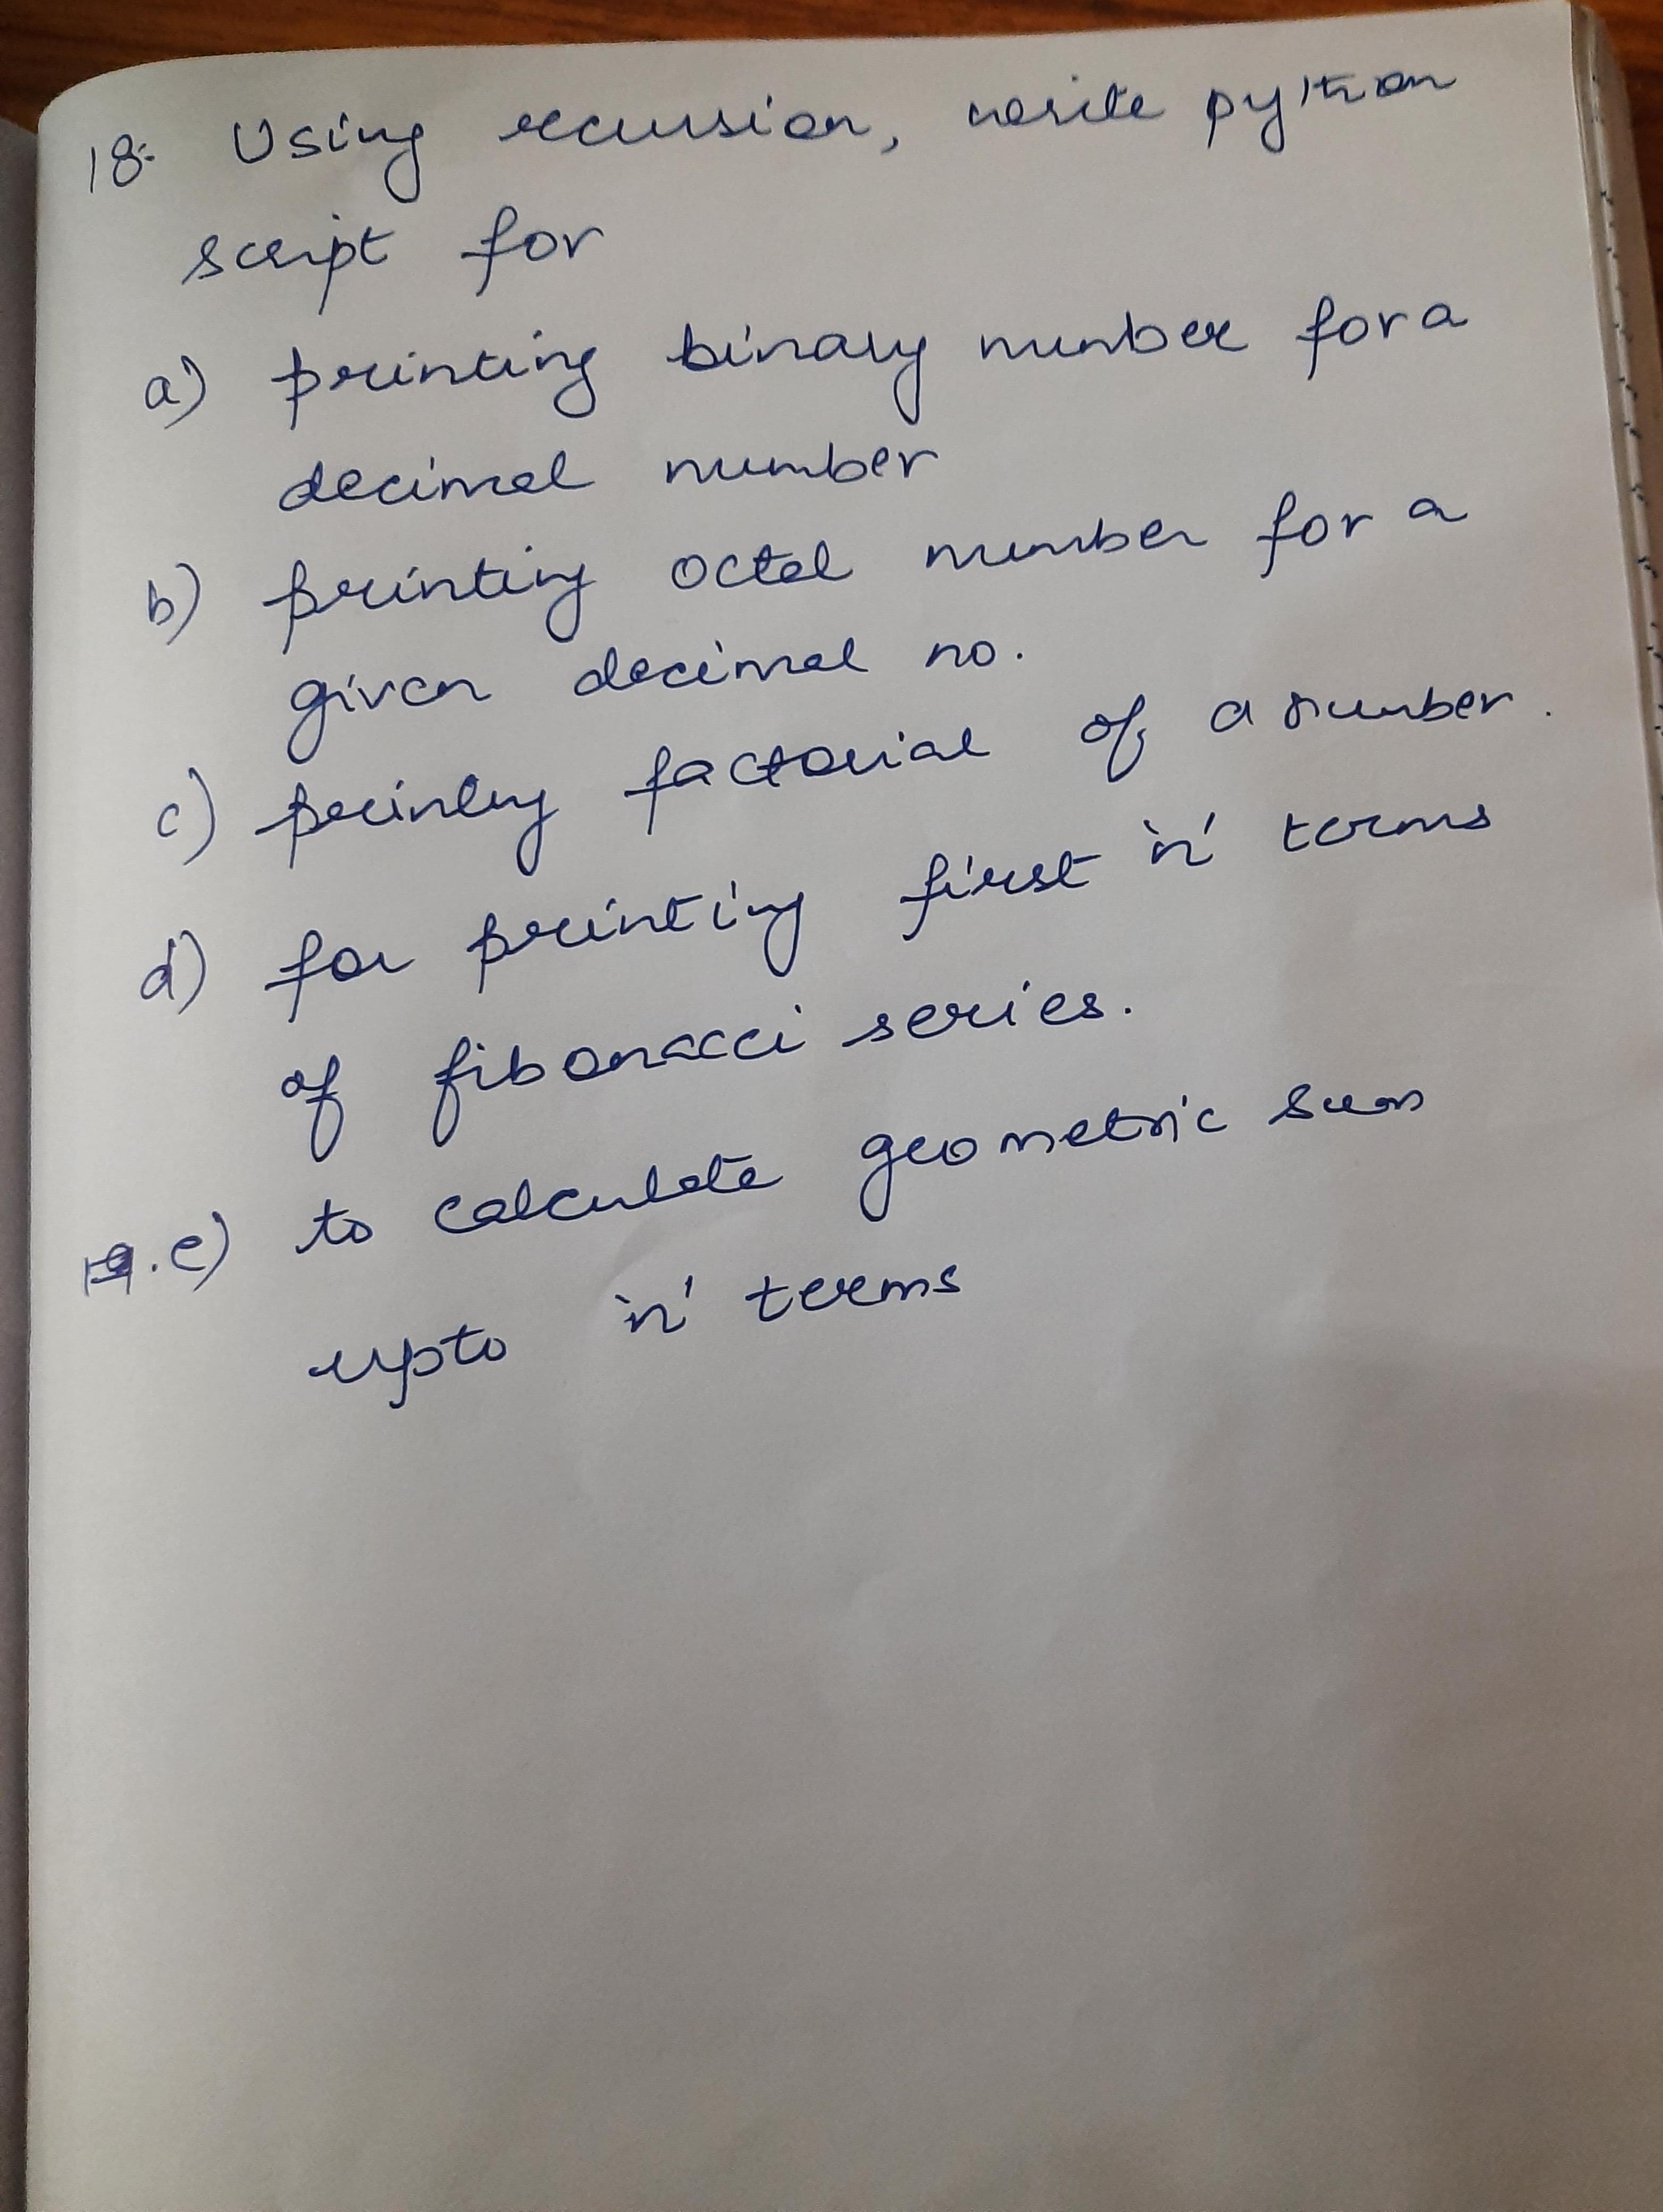 18. Using recursion, write python
script for
a) printing binary number for a
decimal number
b) printing octal number for a
given decimal no.
c) printing factorial of a number.
d) for printing first 'n' terms
of fibonacci series.
e) to calculate geometric sum
upto 'n' terms